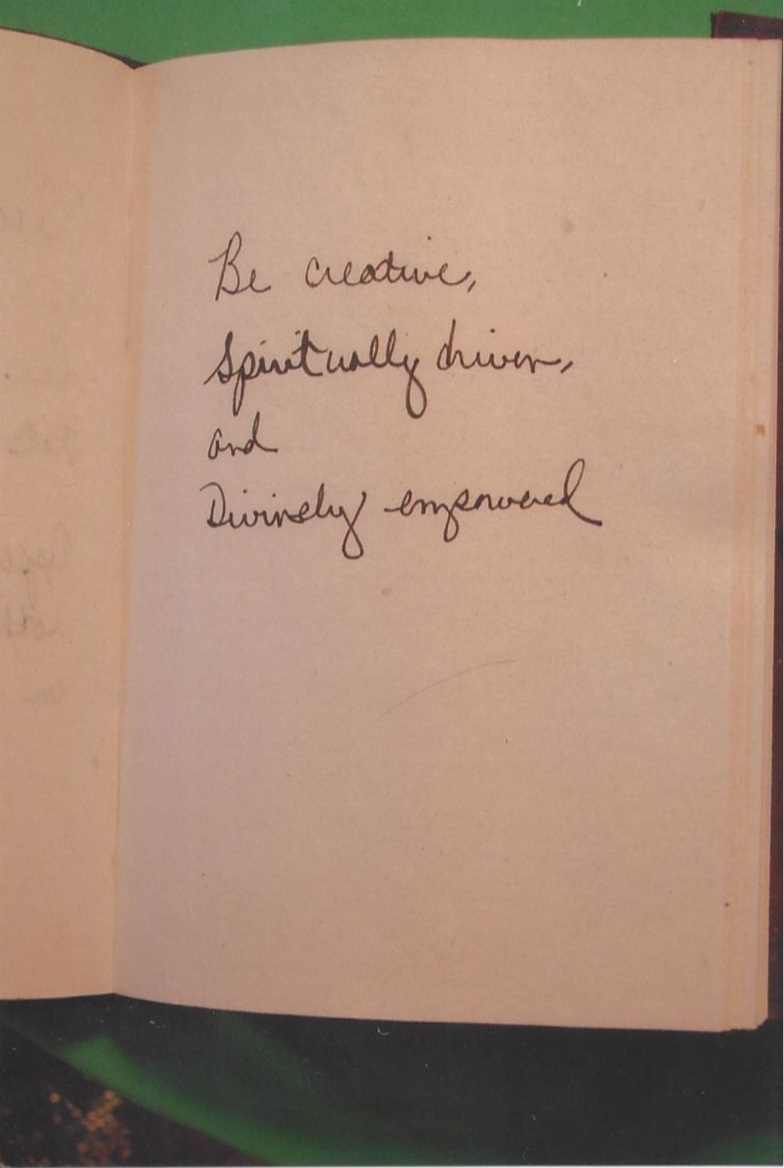 Be creative,
Spiritually driven,
and
Divinely empowered